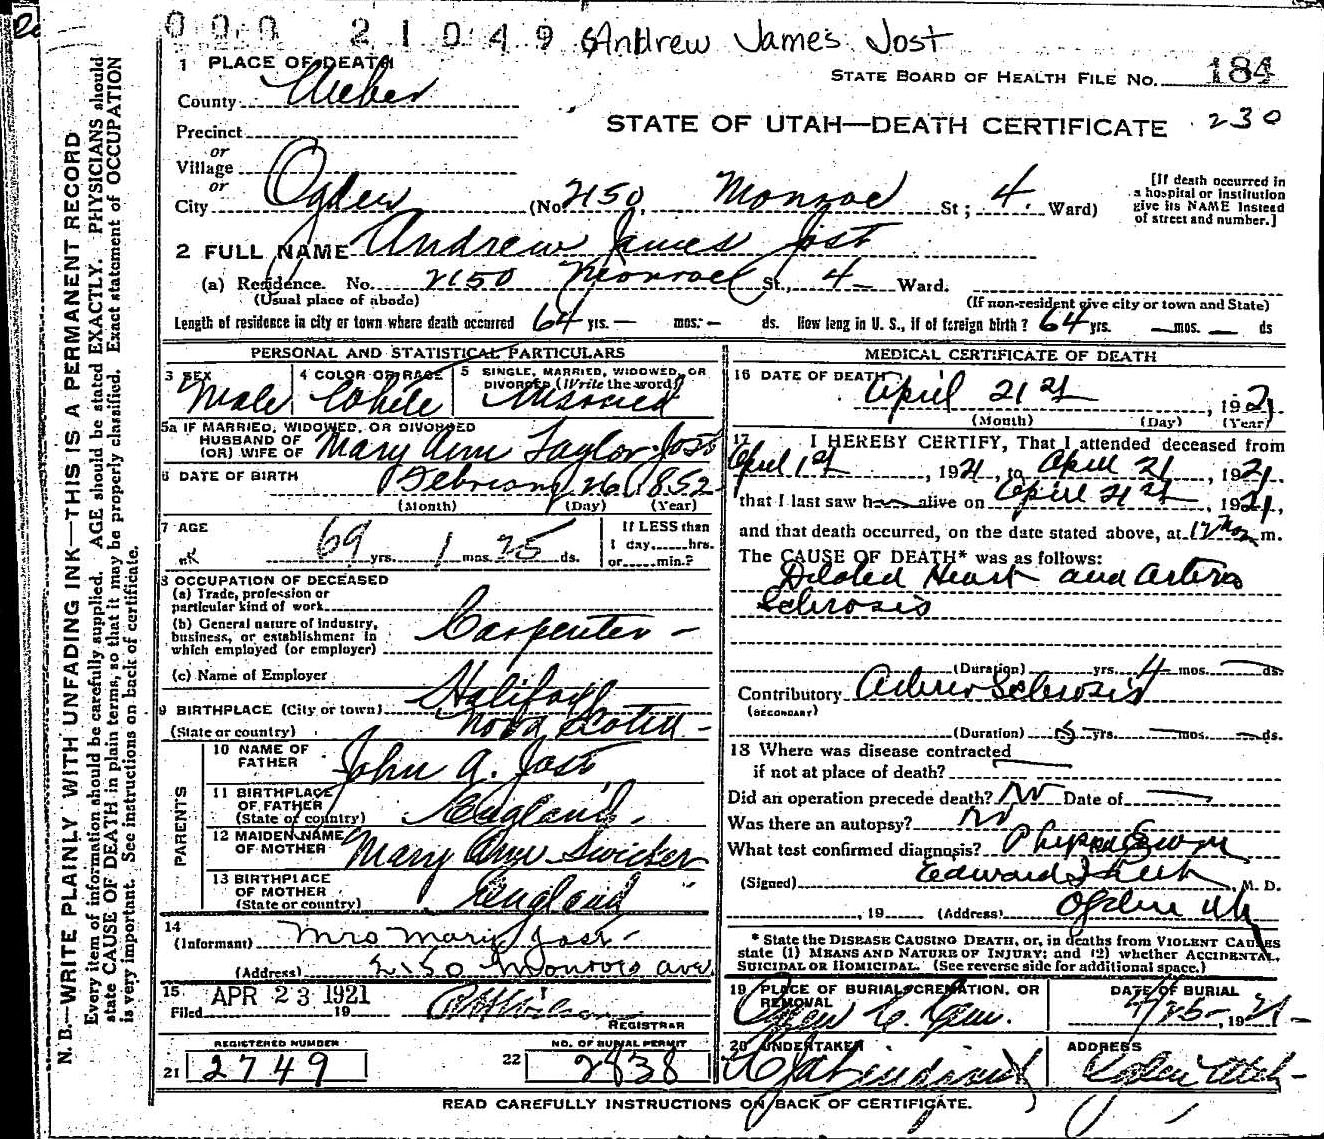 000 21049
Andrew James Jost
1 PLACE OF DEATH
STATE BOARD OF HEALTH FILE NO. 184
County Weber
STATE OF UTAH—DEATH CERTIFICATE 230
Precinct
or
Village
or
City Ogden (No 2150 Monroe St; 4. Ward)
[If death occurred in
a hospital or institution
give its NAME instead
of street and number.]
2 FULL NAME Andrew James Jost
(a) Residence. No. 2150 Monroe St., 4 Ward.
(Usual place of abode)
(If non-resident give city or town and State)
Length of residence in city or town where death occurred 64 yrs. — mos. — ds. How long in U. S., if of foreign birth? 64 yrs. — mos. — ds
PERSONAL AND STATISTICAL PARTICULARS
3 SEX
Male
4 COLOR OR RACE
White
5 SINGLE, MARRIED, WIDOWED, OR
DIVORCED (Write the word)
Married
5a IF MARRIED, WIDOWED, OR DIVORCED
HUSBAND OF
(OR) WIFE OF Mary Ann Taylor Jost
6 DATE OF BIRTH February 26 1852
(Month) (Day) (Year)
7 AGE
69 yrs. 1 mos. 25 ds.
If LESS than
1 day,......hrs.
or......min.?
8 OCCUPATION OF DECEASED
(a) Trade, profession or
particular kind of work
(b) General nature of industry,
business, or establishment in
which employed (or employer)
Carpenter —
(c) Name of Employer
9 BIRTHPLACE (City or town) Halifax
(State or country) Nova Scotia —
PARENTS
10 NAME OF
FATHER John A. Jost
11 BIRTHPLACE
OF FATHER
(State or country) England.
12 MAIDEN NAME
OF MOTHER Mary Ann Swicker
13 BIRTHPLACE
OF MOTHER
(State or country) England
14
(Informant) Mrs Mary Jost—
(Address) 2150 Monroe ave.
15
Filed APR 23 1921 19
Wilson
REGISTRAR
REGISTERED NUMBER
21 2749
NO. OF BURIAL PERMIT
22 2838
MEDICAL CERTIFICATE OF DEATH
16 DATE OF DEATH
April 21st, 1921
(Month) (Day) (Year)
17 I HEREBY CERTIFY, That I attended deceased from
April 1st, 1921, to April 21, 1921
that I last saw h alive on April 21st, 1921,
and that death occurred, on the date stated above, at 12 m.
The CAUSE OF DEATH* was as follows:
Dilated Heart and Arterio
Sclerosis
(Duration) yrs. 4 mos. — ds.
Contributory Arterio Sclerosis
(SECONDARY)
(Duration) 5 yrs. — mos. — ds.
18 Where was disease contracted
if not at place of death?
Did an operation precede death? No Date of —
Was there an autopsy? No
What test confirmed diagnosis?
(Signed) Edward M. D.
, 19 (Address) Ogden Ut
* State the DISEASE CAUSING DEATH, or, in deaths from VIOLENT CAUSES
state (1) MEANS AND NATURE OF INJURY; and (2) whether ACCIDENTAL,
SUICIDAL OR HOMICIDAL. (See reverse side for additional space.)
19 PLACE OF BURIAL, CREMATION, OR
REMOVAL
Ogden C. Cem.
DATE OF BURIAL
4/25—, 1921—
20 UNDERTAKER
Lindquist
ADDRESS
Ogden Utah—
READ CAREFULLY INSTRUCTIONS ON BACK OF CERTIFICATE.
N. B.—WRITE PLAINLY WITH UNFADING INK—THIS IS A PERMANENT RECORD
Every item of information should be carefully supplied. AGE should be stated EXACTLY. PHYSICIANS should
state CAUSE OF DEATH in plain terms, so that it may be properly classified. Exact statement of OCCUPATION
is very important. See instructions on back of certificate.